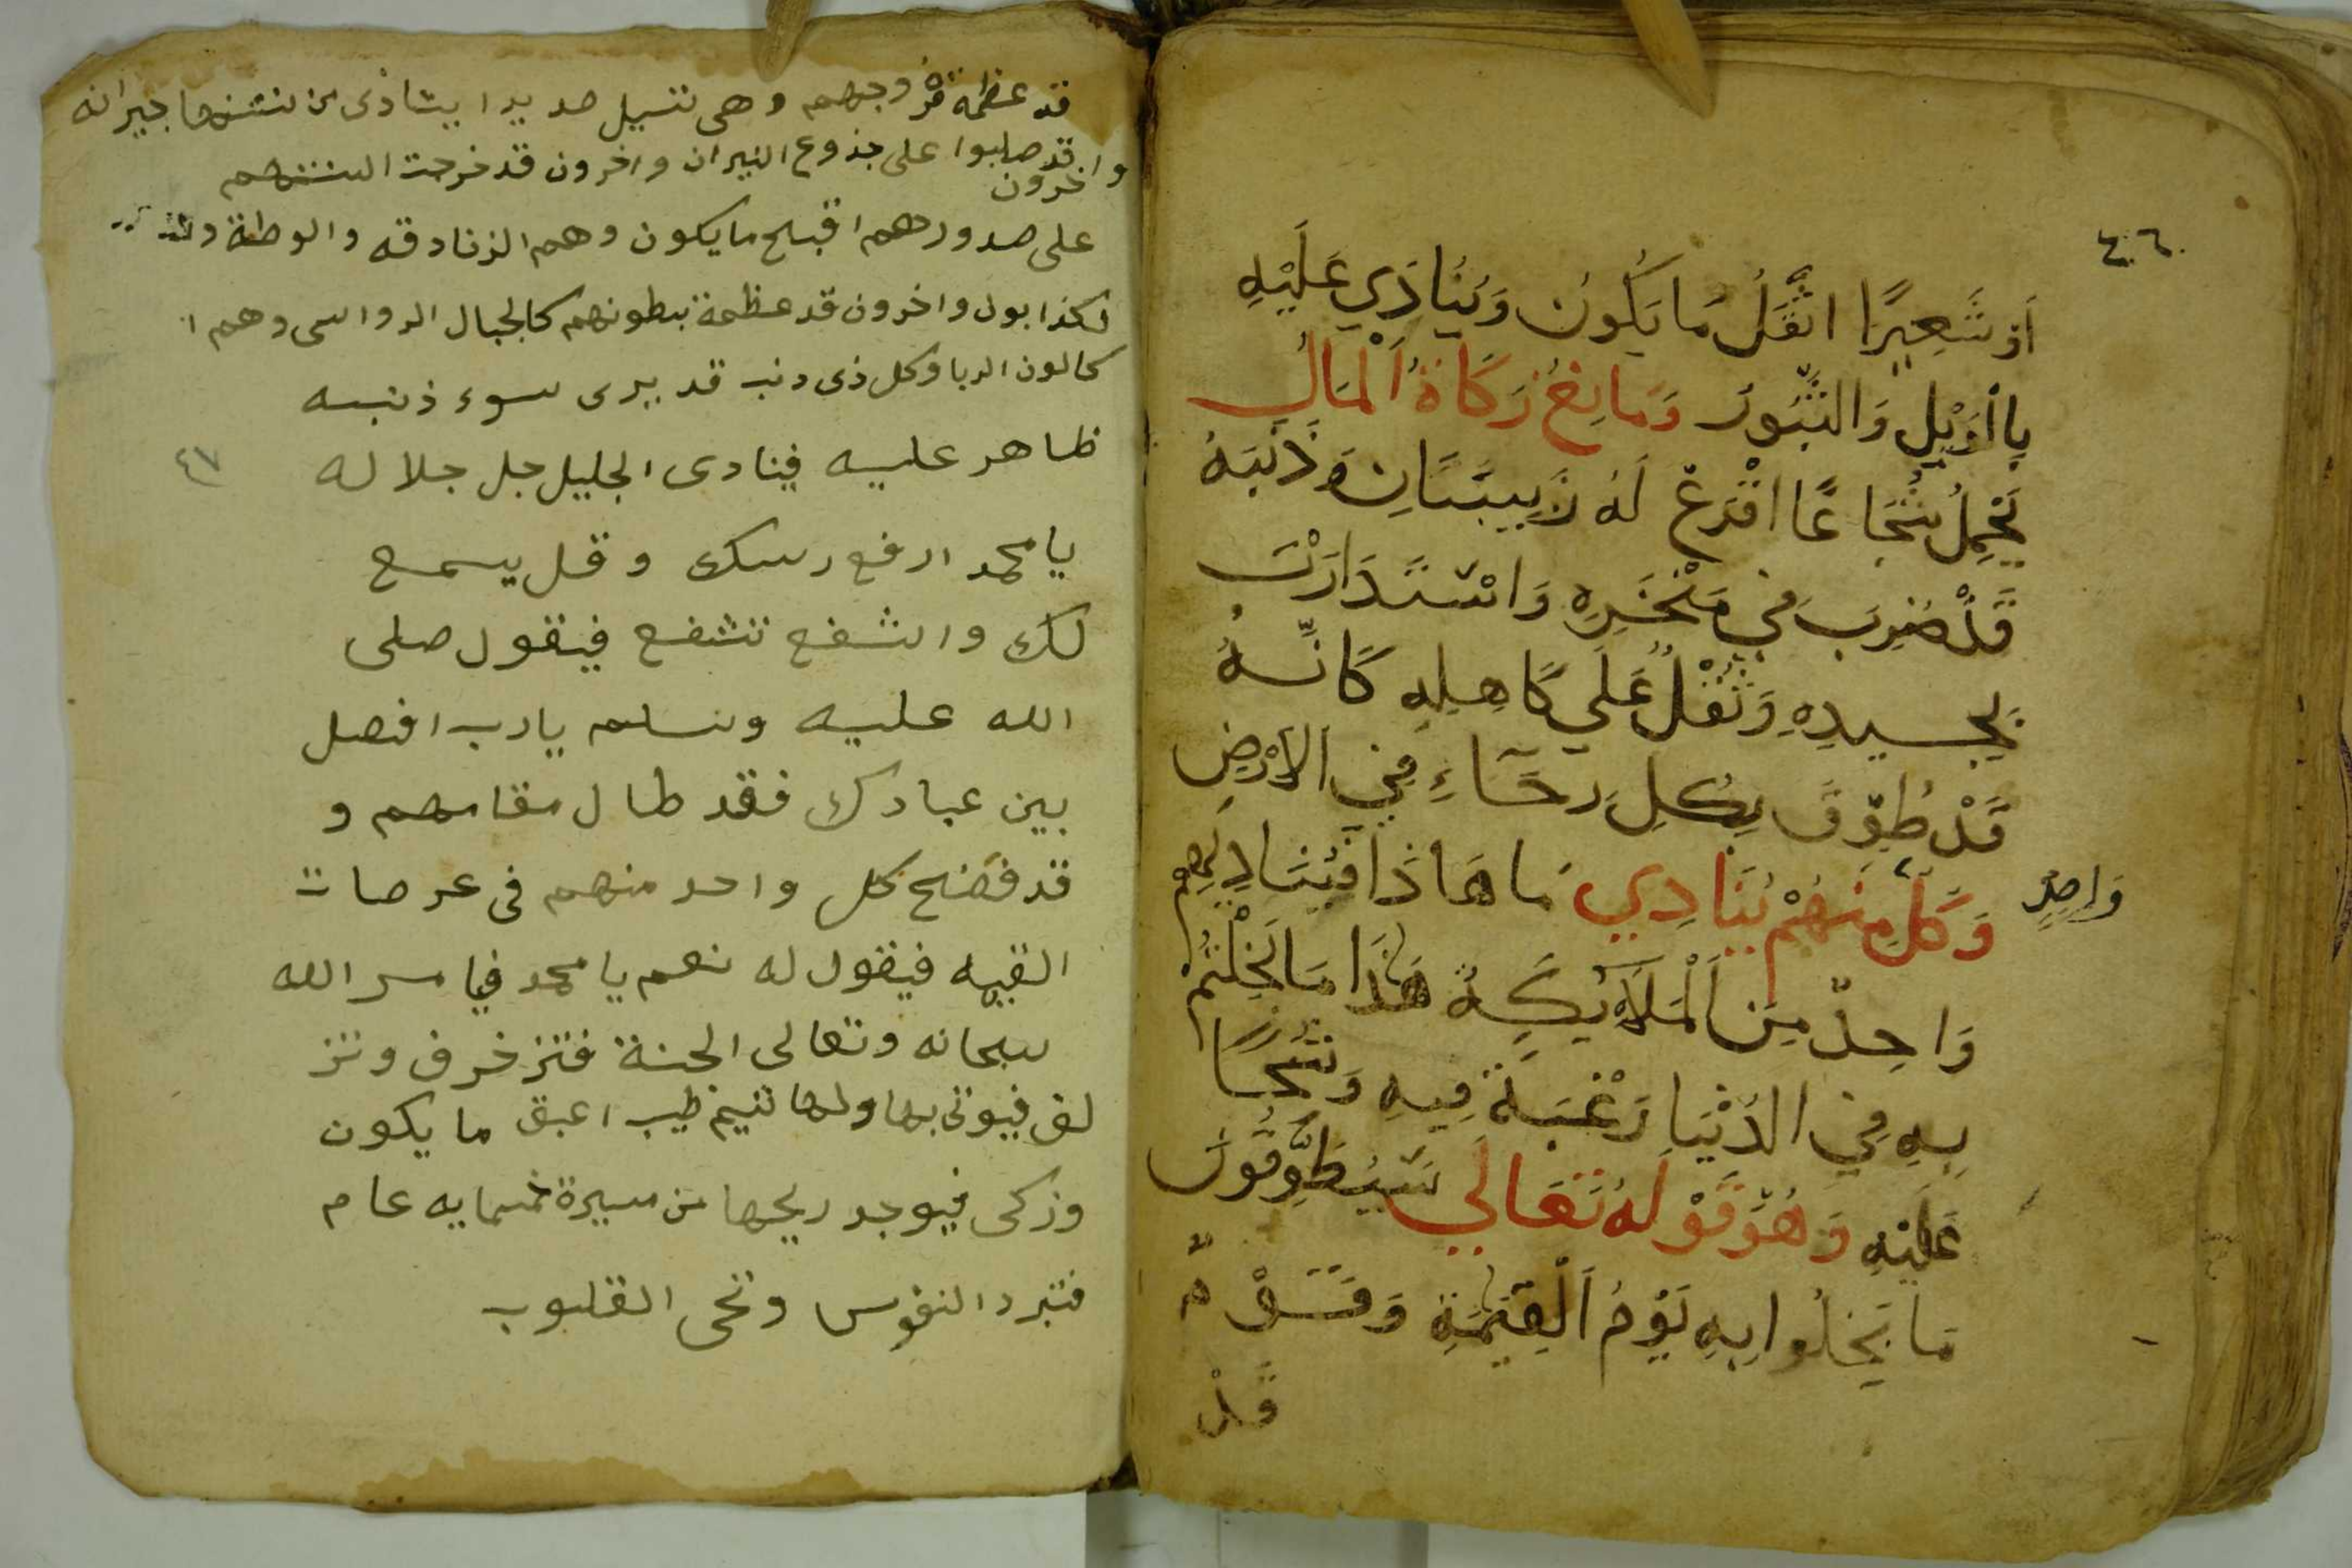 ٤٠٦
أَوْ شَعِيرًا اثْقَلُ مَا يَكُونُ وَيُنَادِي عَلَيْهِ
بِالْوَيْلِ وَالثُّبُورُ وَمَانِعُ زَكَاةُ الْمَالِ
يَحْمِلُ شُجَاعًا اقْرَعْ لَهُ زَبِيبَتَانِ وَذَنَبَهُ
قَدْ ضُرِبَ فِي مَنْخَرِهِ وَاسْتَدَارَتْ
بِجِيدِهِ وَثَقُلُ عَلَي كَاهِلِهِ كَانَّهُ
قَدْ طُوِّقَ بِكُلِ رِحَاءٍ فِي الْارْضِ
وَكُلٌ مِنْهُمْ يُنَادِي مَا هَاذَا فَيُنَادِيهِمْ
وَاحِدٍ
وَاحِدٌ مِنَ الْمَلَايِكَةُ هَذَا مَا بَخِلْتُمْ
بِهِ فِي الدُنْيَا رَغْبَةً فِيهِ وَشُحًا
عَلَيْهِ وَهُوَ قَوْلَهُ تَعَالَي سَيُطَوَّقُونَ
مَا بَخِلُوا بِهِ يَوْمَ الْقِيَمَةِ وَقَوْمٌ
قَدْ
قد عظمة فروجهم وهى تسيل صديدا يتاذى من نتنها جيرانه
واخرون قد صلبوا على جذوع النيران واخرون قد خرجت السنتهم
على صدورهم اقبح ما يكون وهم الزنادقه والوطة و
لكذابون واخرون قد عظمة بطونهم كالجبال الرواسى وهم ا
كالون الربا وكل ذى دنب قد يرى سوء ذنبه
ظاهر عليه فينادى الجليل جل جلاله
٤٧
يا محمد ارفع رسك وقل يسمع
لك واشفع تشفع فيقول صلى
الله عليه وسلم يا رب افصل
بين عبادك فقد طال مقامهم و
قد فضح كل واحد منهم فى عرصات
القيمه فيقول له نعم يا محمد فيامر الله
سبحانه وتعالى الجنة فتزخرف وتز
لف فيوتى بها ولها نسيم طيب اعبق ما يكون
وزكى فيوجد ريحها من مسيرة خمسمايه عام
فتبرد النفوس وتحى القلوب